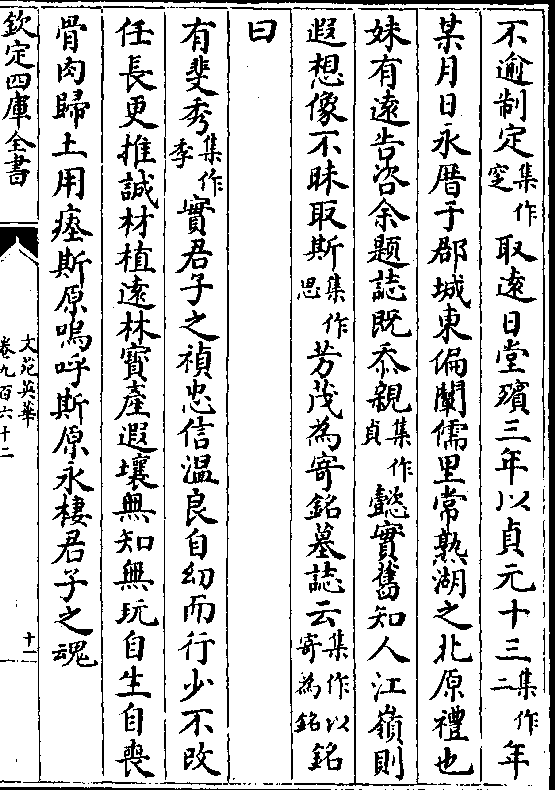 不逾制定集作窆取遠日堂殯三年以貞元十三集作二年
某月日永厝于郡城東偏闡儒里常熟湖之北原禮也
妹有遠告咨余題誌既忝親集作貞懿實舊知人江嶺則
遐想像不昧取斯集作思芳茂為寄銘墓誌云集作以寄為銘銘
曰
有斐秀集作李實君子之禎忠信溫良自幼而行少不改
任長更推誠材植遠林寳產遐壤無知無玩自生自喪
骨肉歸土用瘞斯原嗚呼斯原永棲君子之魂
欽定四庫全書
文苑英華
卷九百六十二
十一